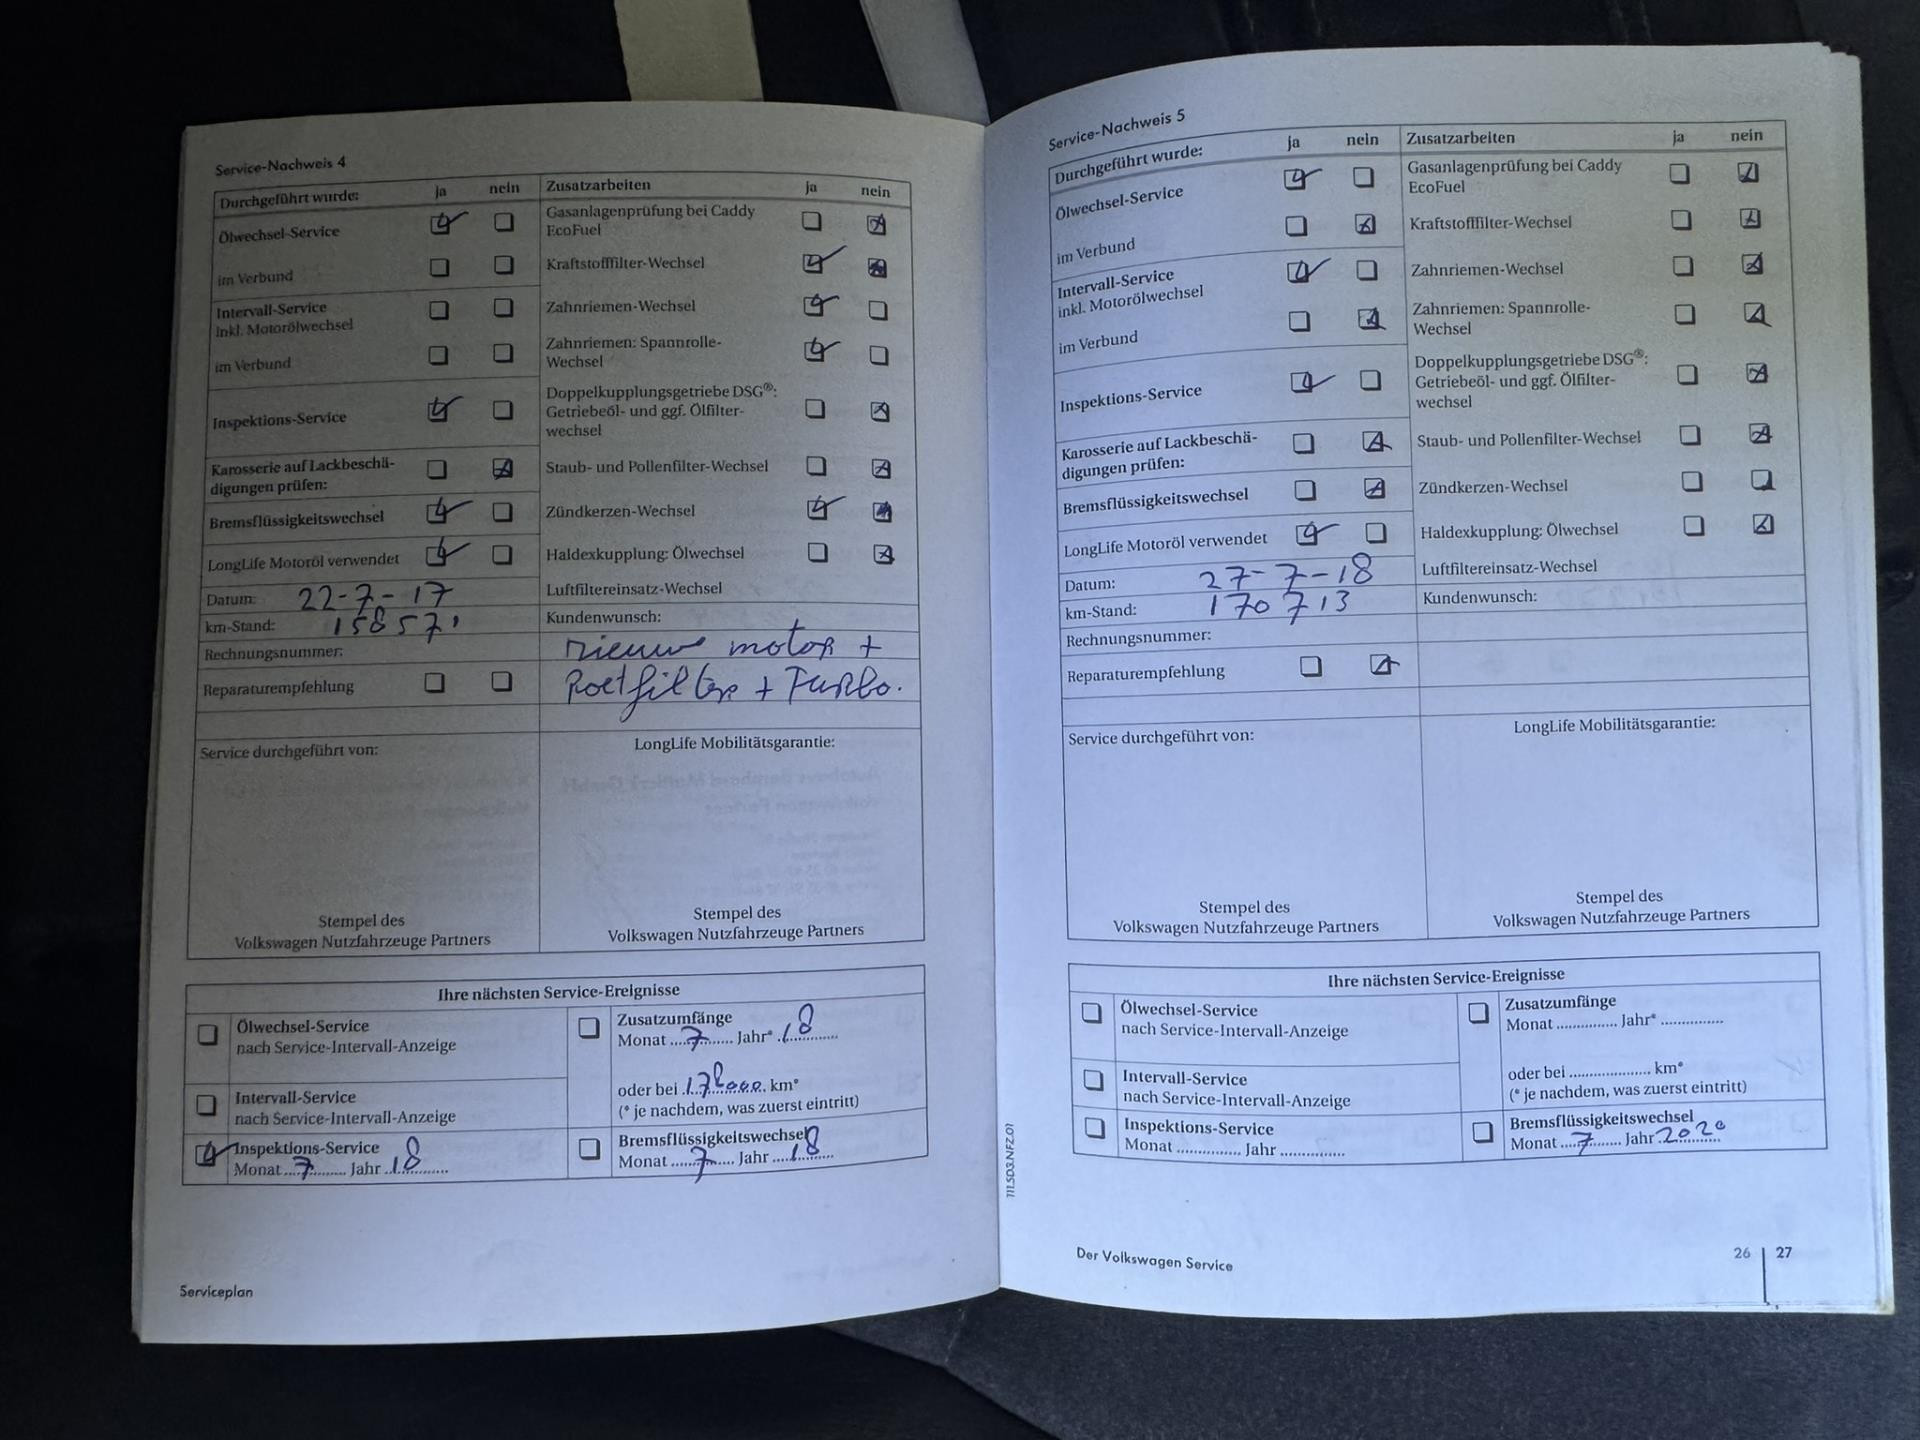 Service-Nachweis 4
Durchgeführt wurde: ja nein Zusatzarbeiten ja nein
Ölwechsel-Service Gasanlagenprüfung bei Caddy
EcoFuel
im Verbund Kraftstofffilter-Wechsel
Intervall-Service Zahnriemen-Wechsel
inkl. Motorölwechsel
im Verbund Zahnriemen: Spannrolle-
Wechsel
Inspektions-Service Doppelkupplungsgetriebe DSG®:
Getriebeöl- und ggf. Ölfilter-
wechsel
Karosserie auf Lackbeschä- Staub- und Pollenfilter-Wechsel
digungen prüfen:
Bremsflüssigkeitswechsel Zündkerzen-Wechsel
LongLife Motoröl verwendet Haldexkupplung: Ölwechsel
Datum: 22-7-17 Luftfiltereinsatz-Wechsel
km-Stand: 158571 Kundenwunsch:
Rechnungsnummer: nieuwe motor +
Reparaturempfehlung Roetfilter + Turbo.
Service durchgeführt von: LongLife Mobilitätsgarantie:
Stempel des Stempel des
Volkswagen Nutzfahrzeuge Partners Volkswagen Nutzfahrzeuge Partners
Ihre nächsten Service-Ereignisse
Ölwechsel-Service Zusatzumfänge
nach Service-Intervall-Anzeige Monat ....7....... Jahr* .18............
oder bei .178000. km*
Intervall-Service (* je nachdem, was zuerst eintritt)
nach Service-Intervall-Anzeige
Inspektions-Service Bremsflüssigkeitswechsel
Monat ....7....... Jahr .18........... Monat ........7...... Jahr ....18........
Serviceplan
Service-Nachweis 5
Durchgeführt wurde: ja nein Zusatzarbeiten ja nein
Ölwechsel-Service Gasanlagenprüfung bei Caddy
EcoFuel
im Verbund Kraftstofffilter-Wechsel
Intervall-Service Zahnriemen-Wechsel
inkl. Motorölwechsel
im Verbund Zahnriemen: Spannrolle-
Wechsel
Inspektions-Service Doppelkupplungsgetriebe DSG®:
Getriebeöl- und ggf. Ölfilter-
wechsel
Karosserie auf Lackbeschä- Staub- und Pollenfilter-Wechsel
digungen prüfen:
Bremsflüssigkeitswechsel Zündkerzen-Wechsel
LongLife Motoröl verwendet Haldexkupplung: Ölwechsel
Datum: 27-7-18 Luftfiltereinsatz-Wechsel
km-Stand: 170713 Kundenwunsch:
Rechnungsnummer:
Reparaturempfehlung
Service durchgeführt von: LongLife Mobilitätsgarantie:
Stempel des Stempel des
Volkswagen Nutzfahrzeuge Partners Volkswagen Nutzfahrzeuge Partners
Ihre nächsten Service-Ereignisse
Ölwechsel-Service Zusatzumfänge
nach Service-Intervall-Anzeige Monat ............... Jahr* ...............
oder bei .................... km*
Intervall-Service (* je nachdem, was zuerst eintritt)
nach Service-Intervall-Anzeige
Inspektions-Service Bremsflüssigkeitswechsel
Monat ............... Jahr ............... Monat ...7....... Jahr 2020
111.5D3.NFZ.01
Der Volkswagen Service 26 | 27